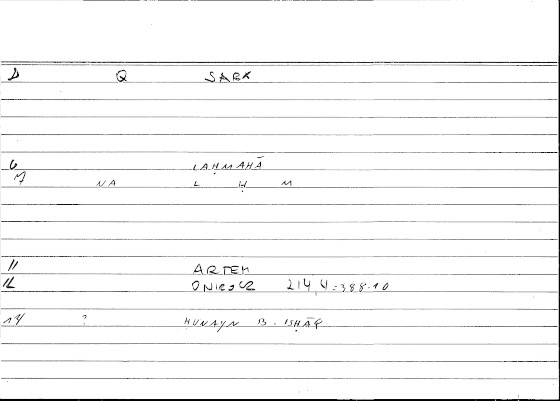 D Q SARX
6 LAḤMAHĀ
7 NA L Ḥ M
11 ARTEM
12 ONIROCR 214,4=388.10
14 ? ḤUNAYN B. ISḤĀQ